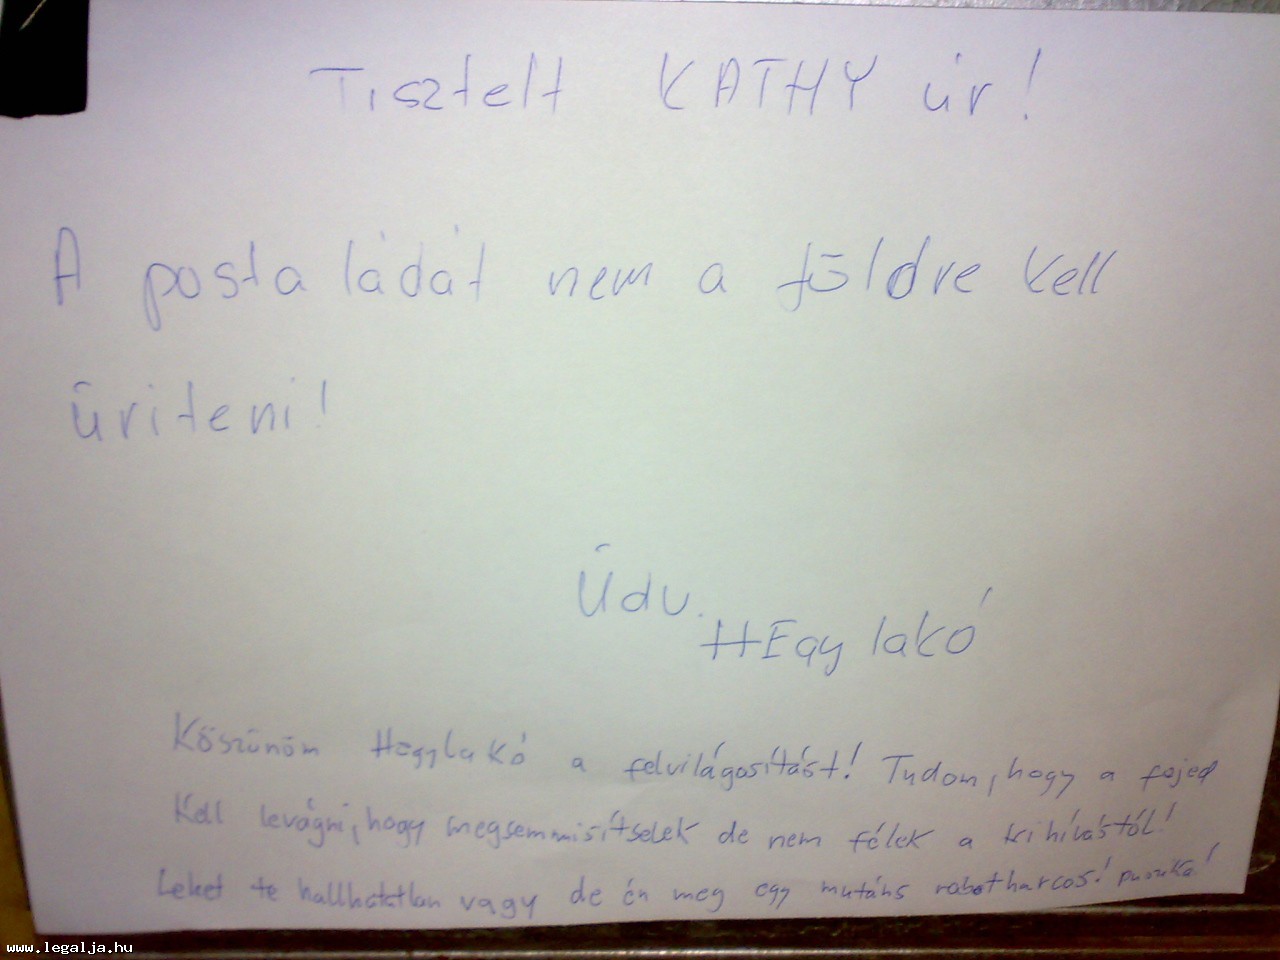 Tisztelt KATHY úr!
A posta ládát nem a földre kell
üriteni!
Üdv.
HEgy lakó
Köszönöm Hegylakó a felvilágosítást! Tudom, hogy a fejed
kell levágni, hogy megsemmisítselek de nem félek a kihívástól!
Lehet te hallhatatlan vagy de én meg egy mutáns robotharcos! puszika!
www.legalja.hu